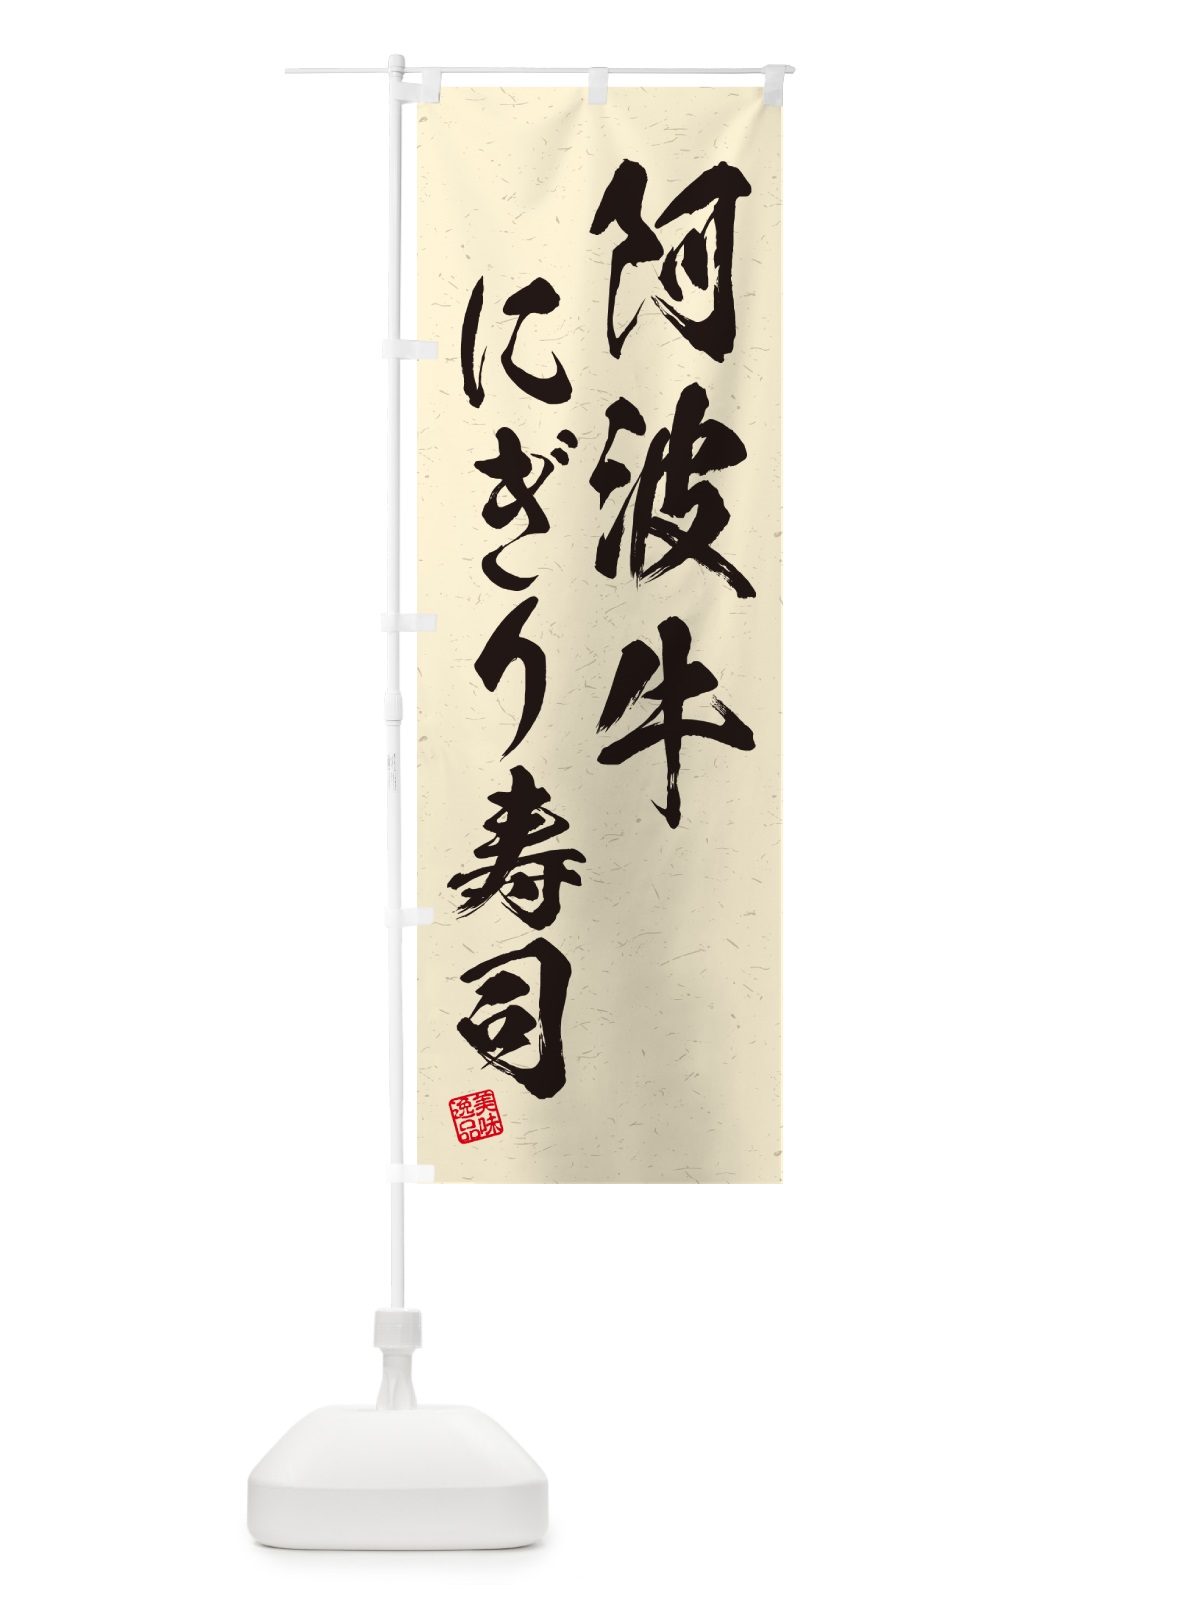 阿波牛
にぎり寿司
美味
逸品